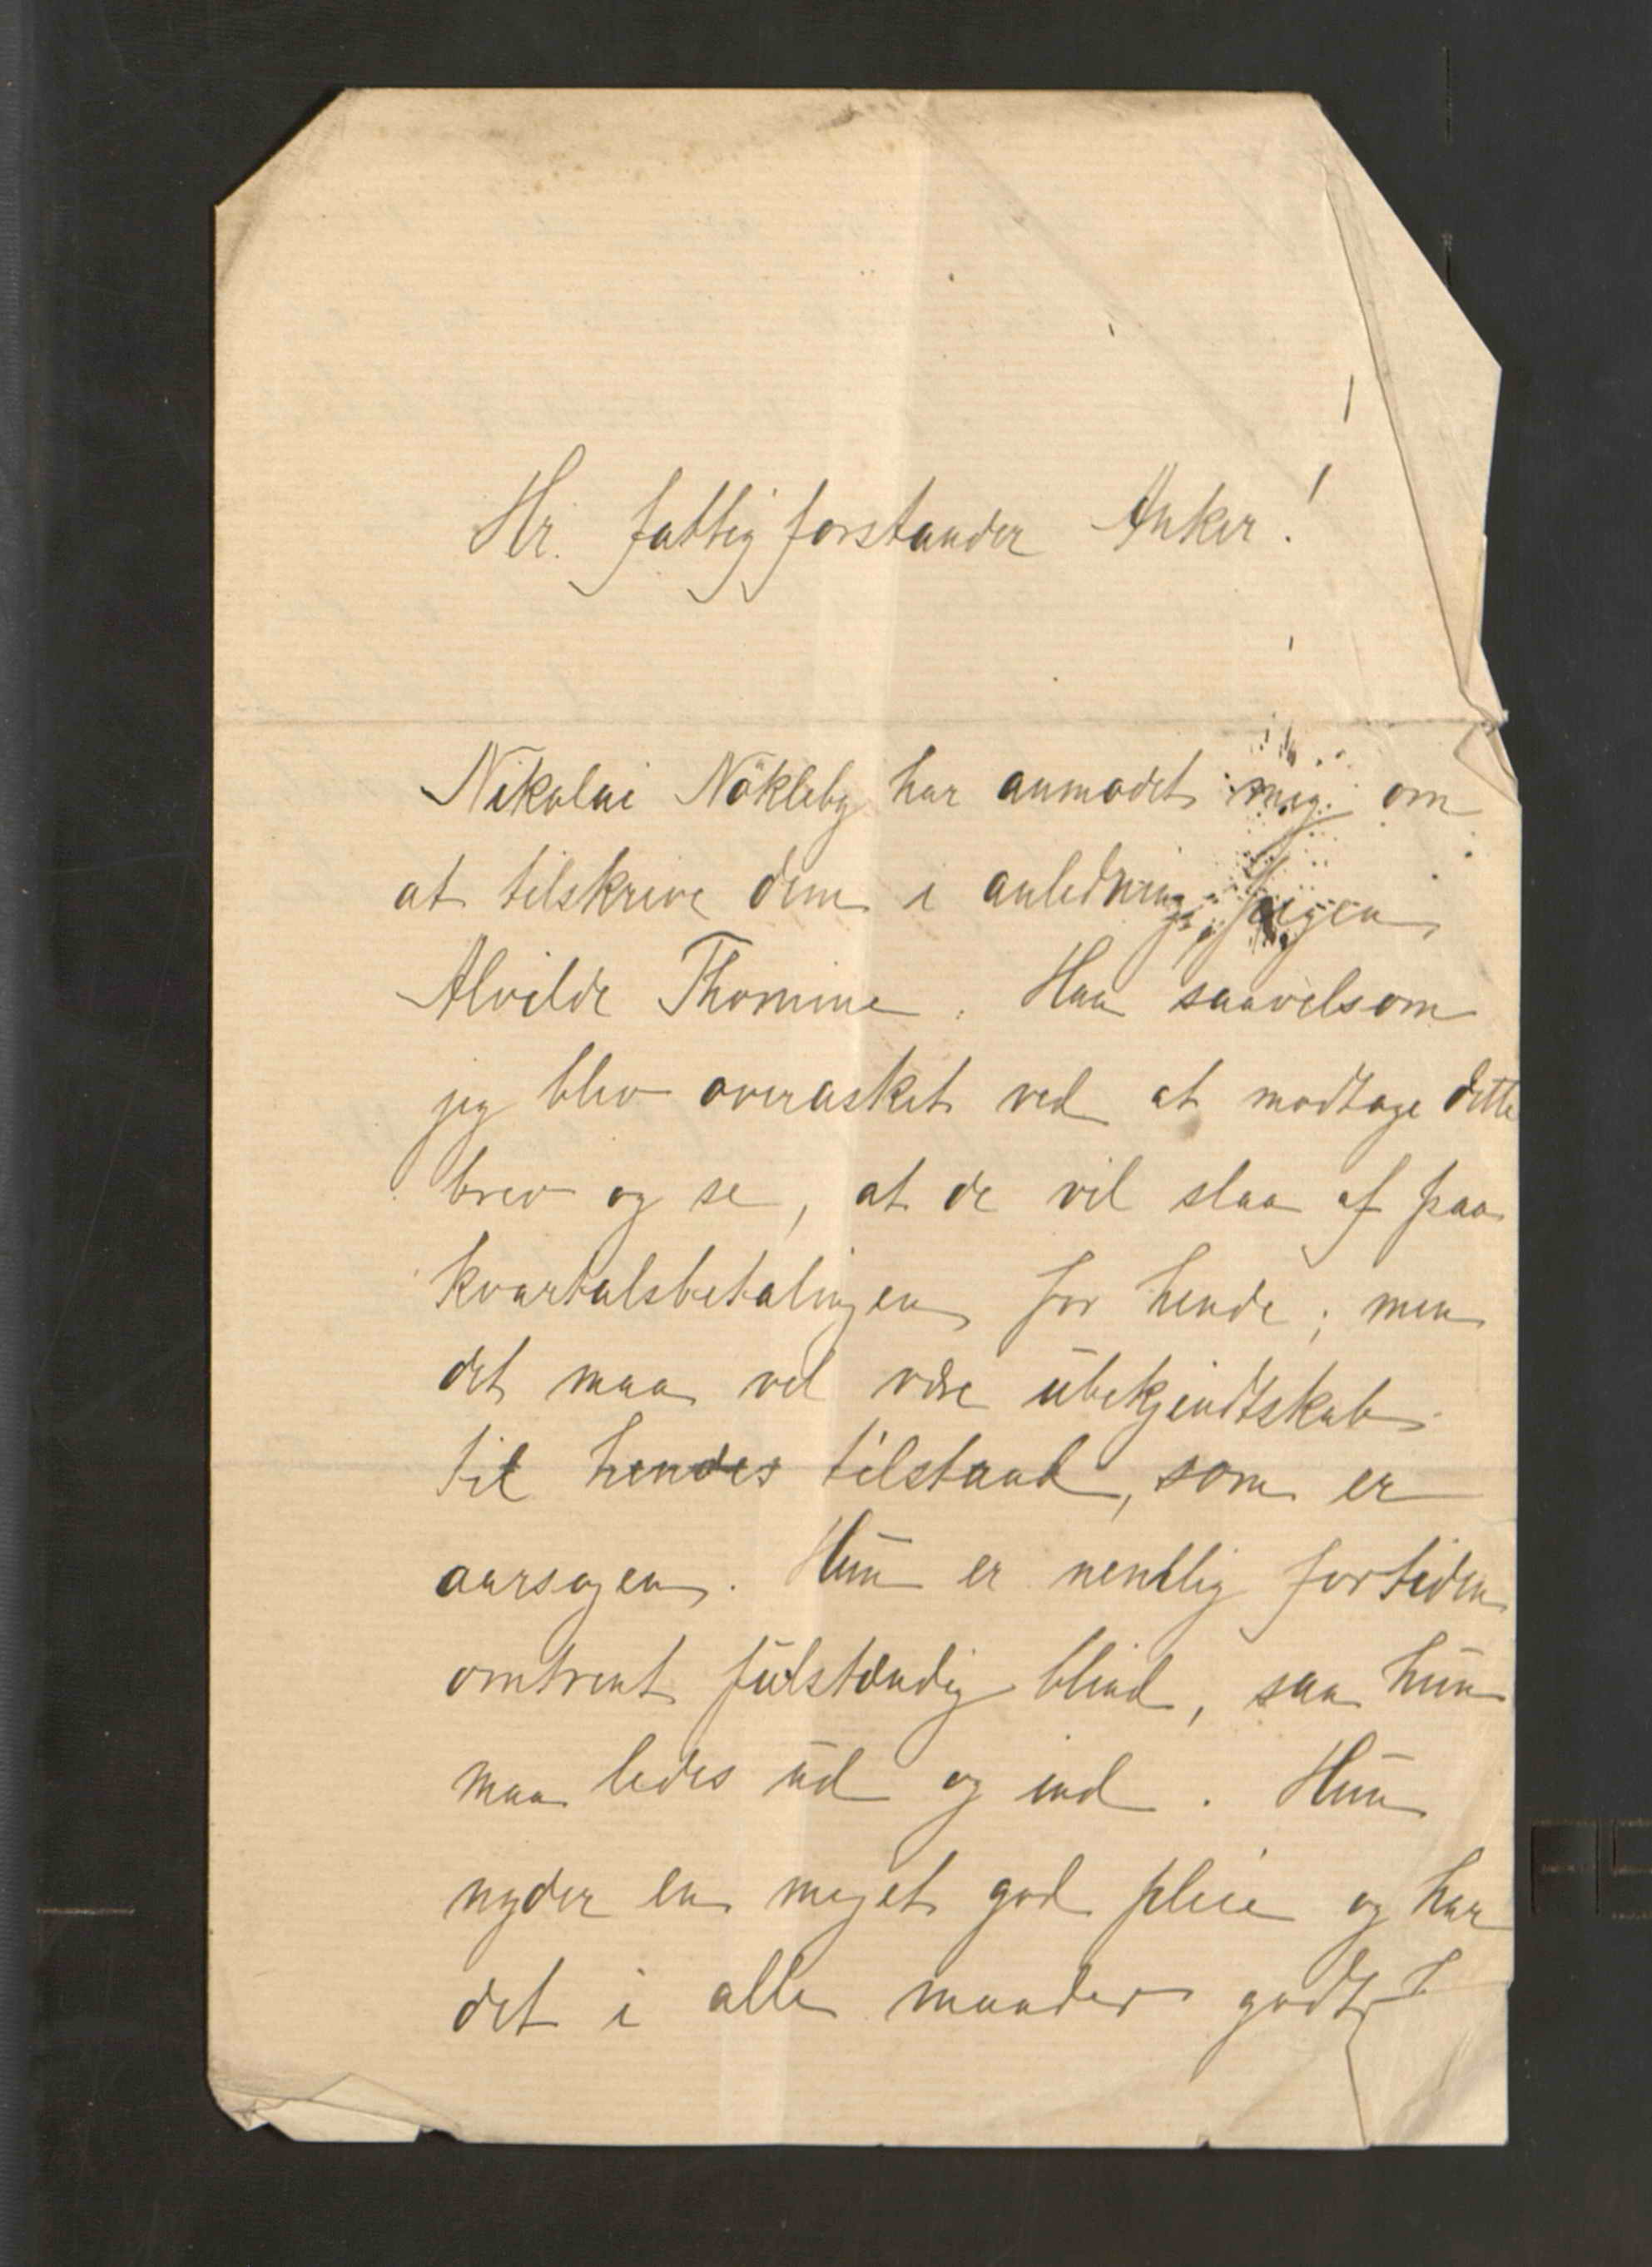 Hr. fattigforstander Anker!
Nikolai Nökleby har anmodet mig om
at tilskrive dem i anledning pigen
Alvilde Thomine. Han saavelsom
jeg blev overasket ved at modtage dette
brev og se, at de vil slaa af paa
kvartalsbetalingen for hende; men
det maa vel være ubekjendtskab
til hendes tilstand, som er
aarsagen. Hun er nemlig fortiden
omtrent fulstændig blind, saa hun
maa ledes ud og ind. Hun
nyder en meget god pleie og har
det i alle maader godt